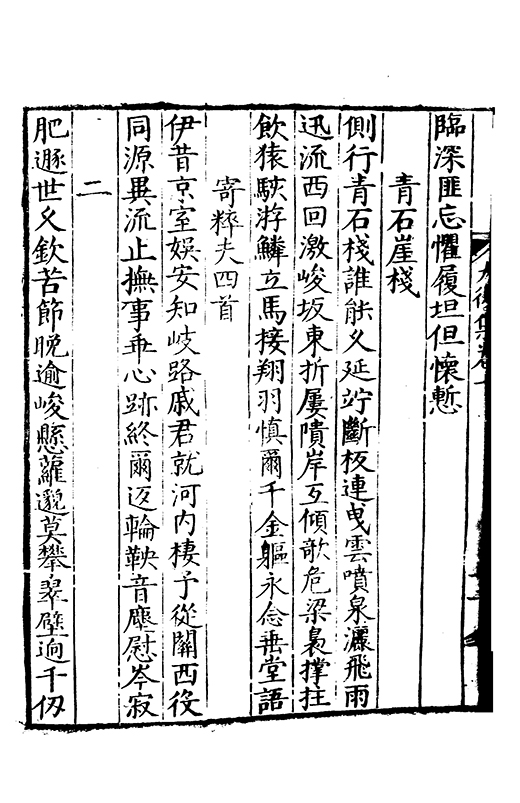 臨深匪忘懼履坦但懷慙
青石崖棧
側行青石棧誰能久延竚斷板連曳雲噴泉灑飛雨
迅流西回激峻坂東折屢嘳岸互傾欹危梁裊撑拄
飲猿駭游鱗立馬接翔羽慎爾千金軀永念垂堂語
寄粹夫四首
伊昔京室娛安知岐路戚君就河内棲予從關西役
同源異流止撫事乖心跡終爾返輪鞅音塵慰岑寂
二
肥遯世久欽苦節晚逾峻懸蘿邈莫攀翠壁逈千仞